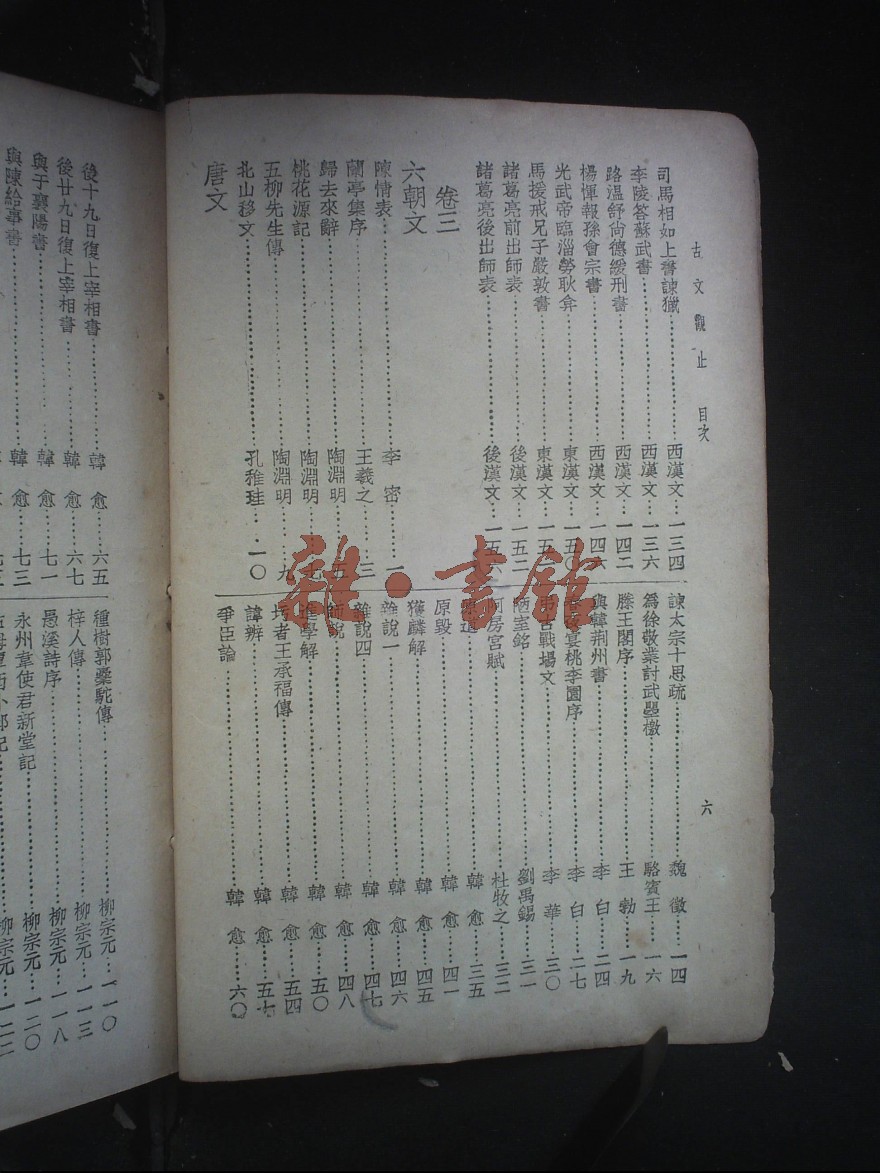 古文觀止 目次
六
司馬相如上書諫獵……西漢文…一三四
李陵答蘇武書……西漢文…一三六
路溫舒尚德緩刑書……西漢文…一四二
楊惲報孫會宗書……西漢文…一四六
光武帝臨淄勞耿弇……東漢文…一五〇
馬援戒兄子嚴敦書……東漢文…一五
諸葛亮前出師表……後漢文…一五二
諸葛亮後出師表……後漢文…一五六
卷三
六朝文
陳情表……李密……一
蘭亭集序……王羲之……三
歸去來辭……陶淵明……五
桃花源記……陶淵明……七
五柳先生傳……陶淵明……九
北山移文……孔稚珪…一〇
唐文
諫太宗十思疏……魏徵…一四
為徐敬業討武曌檄……駱賓王…一六
滕王閣序……王勃…一九
與韓荆州書……李白…二四
春夜宴桃李園序……李白…二七
弔古戰場文……李華…三〇
陋室銘……劉禹錫…三一
阿房宮賦……杜牧之…三二
原道……韓愈…三五
原毀……韓愈…四一
獲麟解……韓愈…四五
雜說一……韓愈…四六
雜說四……韓愈…四七
師說……韓愈…四八
進學解……韓愈…五〇
圬者王承福傳……韓愈…五四
諱辨……韓愈…五七
爭臣論……韓愈…六〇
後十九日復上宰相書……韓愈…六五
後廿九日復上宰相書……韓愈…六七
與于襄陽書……韓愈…七一
與陳給事書……韓愈…七三
種樹郭橐駝傳……柳宗元…一一〇
梓人傳……柳宗元…一一三
愚溪詩序……柳宗元…一一八
永州韋使君新堂記……柳宗元…一二〇
柳宗元…一二二
雜·書館